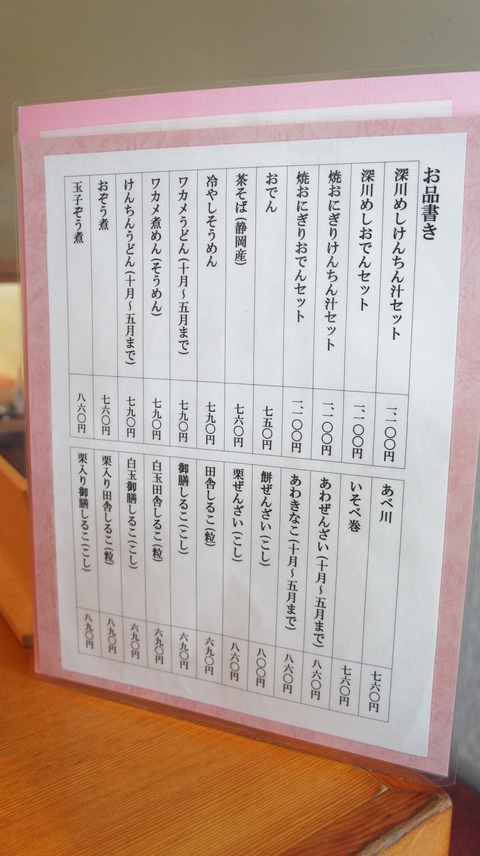 お品書き
深川めしけんちん汁セット 一、一〇〇円
深川めしおでんセット 一、一〇〇円
焼おにぎりけんちん汁セット 一、一〇〇円
焼おにぎりおでんセット 一、一〇〇円
おでん 七五〇円
茶そば(静岡産) 七六〇円
冷やしそうめん 七九〇円
ワカメうどん(十月～五月まで) 七九〇円
ワカメ煮めん(そうめん) 七九〇円
けんちんうどん(十月～五月まで) 七九〇円
おぞう煮 七六〇円
玉子ぞう煮 八六〇円
あべ川 七六〇円
いそべ巻 七六〇円
あわぜんざい(十月～五月まで) 八六〇円
あわきなこ(十月～五月まで) 八六〇円
餅ぜんざい(こし) 八〇〇円
栗ぜんざい(こし) 八六〇円
田舎しるこ(粒) 六九〇円
御膳しるこ(こし) 六九〇円
白玉田舎しるこ(粒) 六九〇円
白玉御膳しるこ(こし) 六九〇円
栗入り田舎しるこ(粒) 八九〇円
栗入り御膳しるこ(こし) 八九〇円